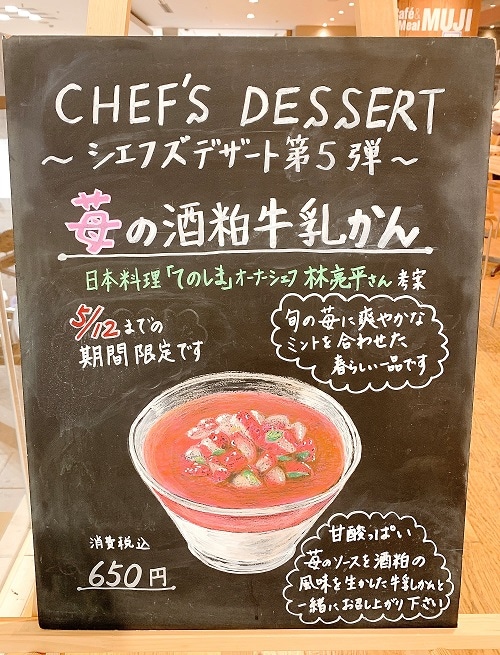 Café&
Meal MUJI
CHEF'S DESSERT
～シェフズデザート第5弾～
苺の酒粕牛乳かん
日本料理「てのしま」オーナーシェフ 林亮平さん考案
5/12までの
期間限定です
旬の苺に爽やかな
ミントを合わせた、
春らしい一品です
消費税込
650円
甘酸っぱい
苺のソースを酒粕の
風味を生かした牛乳かんと
一緒にお召し上がり下さい